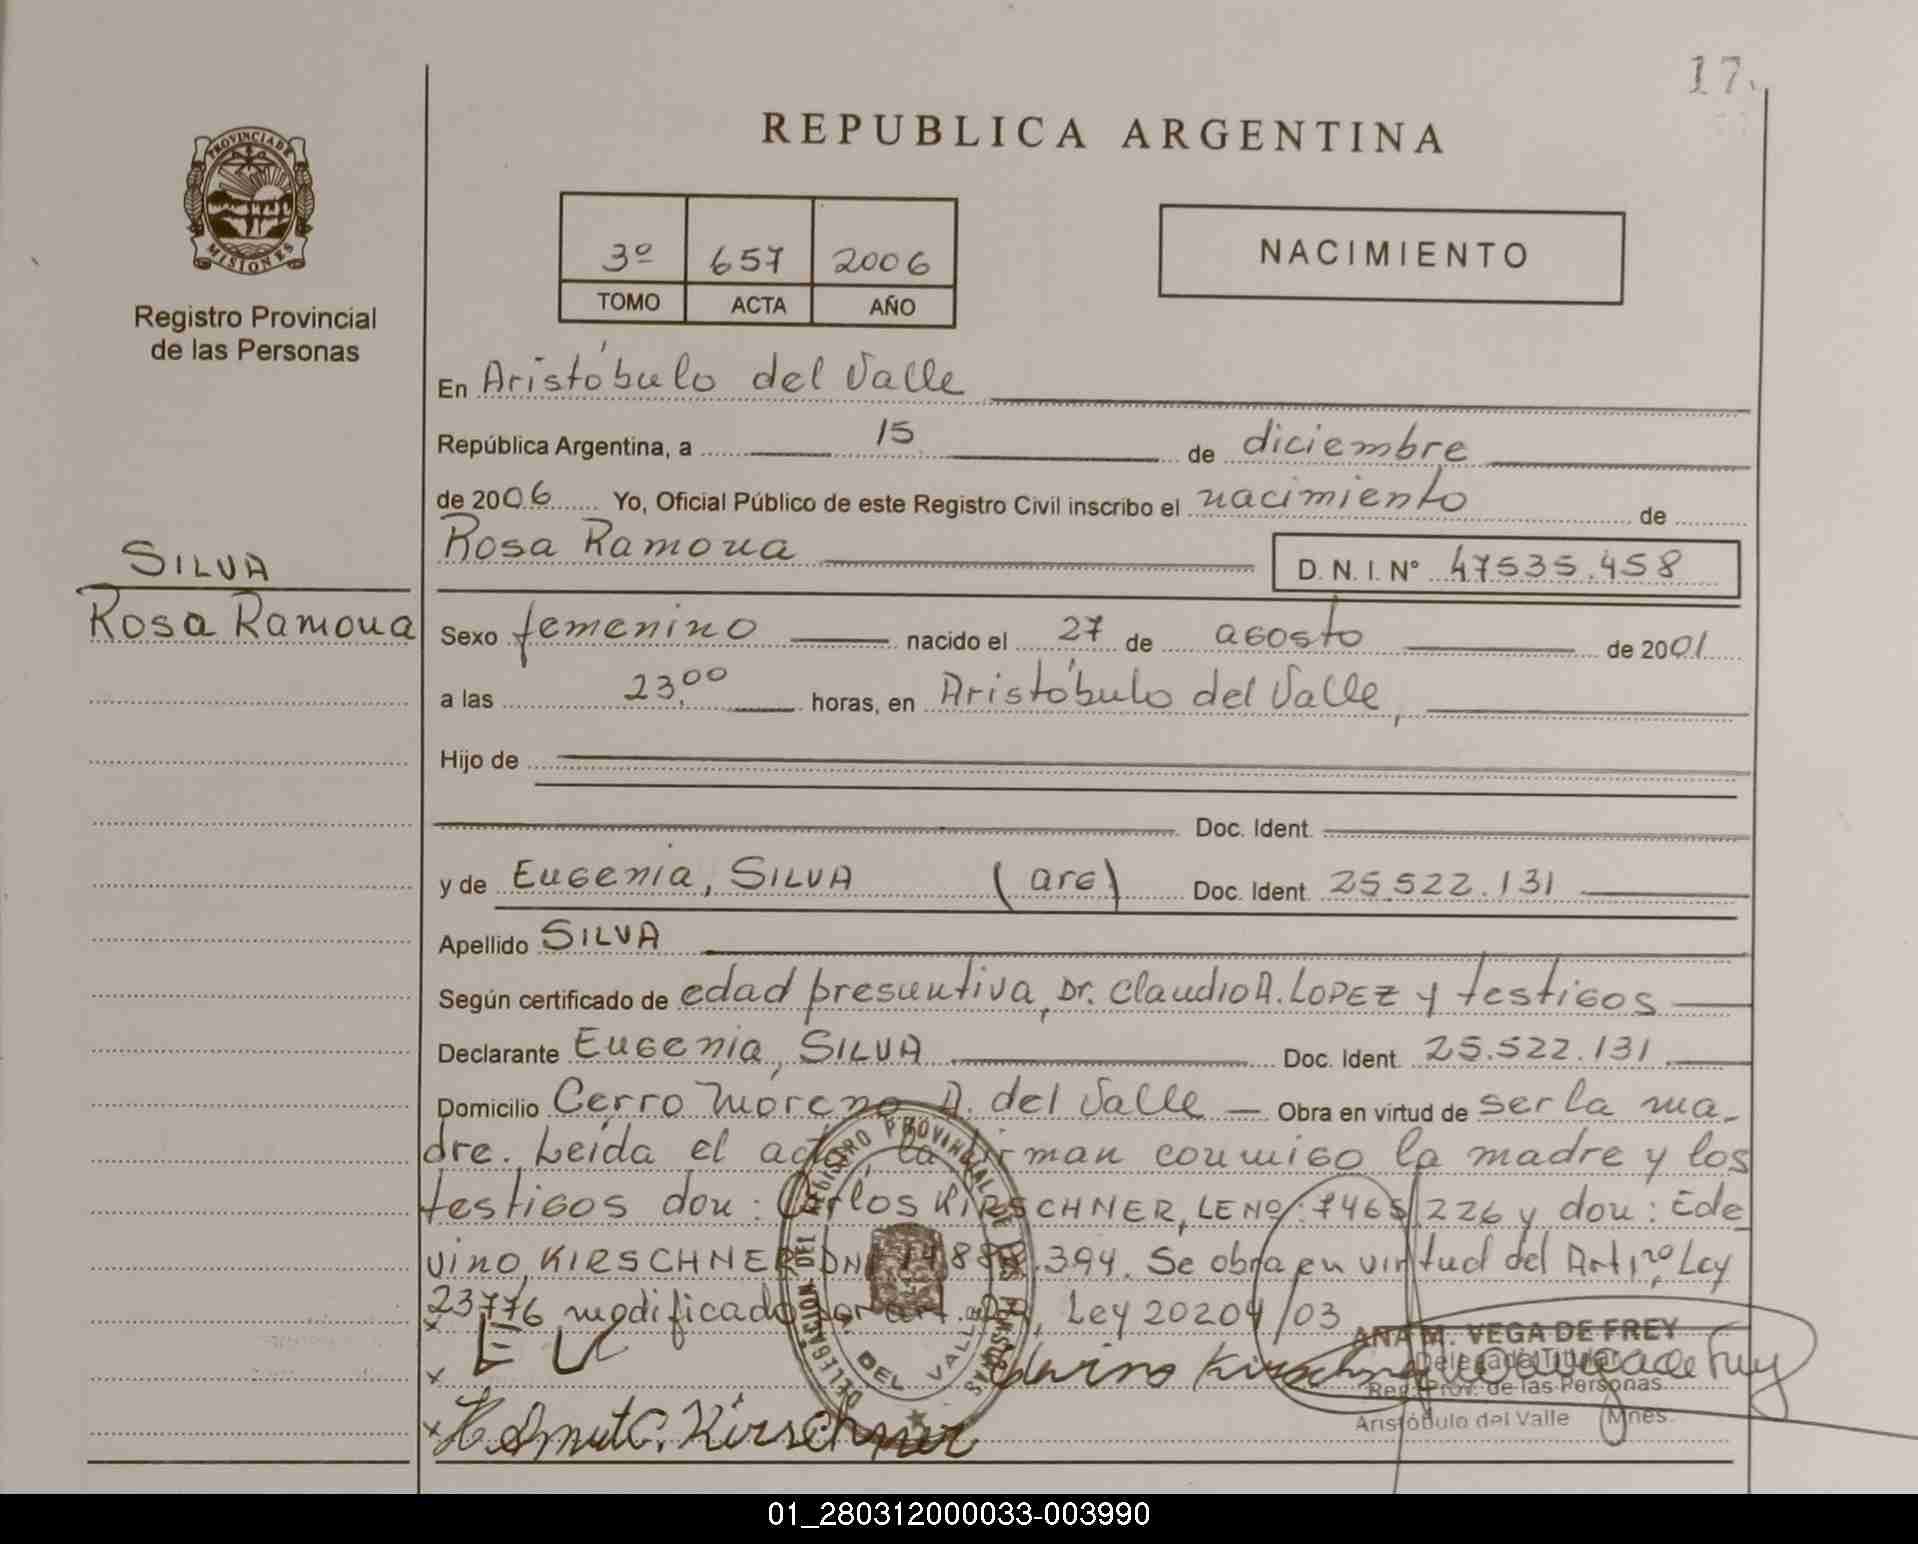 17.
REPUBLICA ARGENTINA
PROVINCIA DE
MISIONES
Registro Provincial
de las Personas
3º 657 2006
TOMO ACTA AÑO
NACIMIENTO
En Aristóbulo del Valle
República Argentina, a 15 de diciembre
de 2006 Yo, Oficial Público de este Registro Civil inscribo el nacimiento de
Rosa Ramona D.N.I.Nº 47535.458
SILVA
Rosa Ramona
Sexo femenino nacido el 27 de agosto de 2001
a las 23,00 horas, en Aristóbulo del Valle,
Hijo de
Doc. Ident.
y de Eugenia, SILVA (arg) Doc. Ident. 25.522.131
Apellido SILVA
Según certificado de edad presuntiva, Dr. Claudio A. LOPEZ y testigos
Declarante Eugenia, SILVA Doc. Ident. 25.522.131
Domicilio Cerro Moreno A. del Valle — Obra en virtud de ser la ma-
dre. Leída el acta, la firman conmigo la madre y los
testigos don: Carlos KIRSCHNER, LE Nº: 7465.226 y don: Ede
vino, KIRSCHNER DNI .394. Se obra en virtud del Art 1ro, Ley
23776 modificado por art. Ley 20204/03
x E U
x Edwino Kirschner
x Helmut C. Kirschner
DELEGACION DEL REGISTRO PROVINCIAL DE LAS PERSONAS
DEL VALLE
ANA M. VEGA DE FREY
Delegada Titular
Reg. Prov. de las Personas
Aristóbulo del Valle Mnes.
01_280312000033-003990